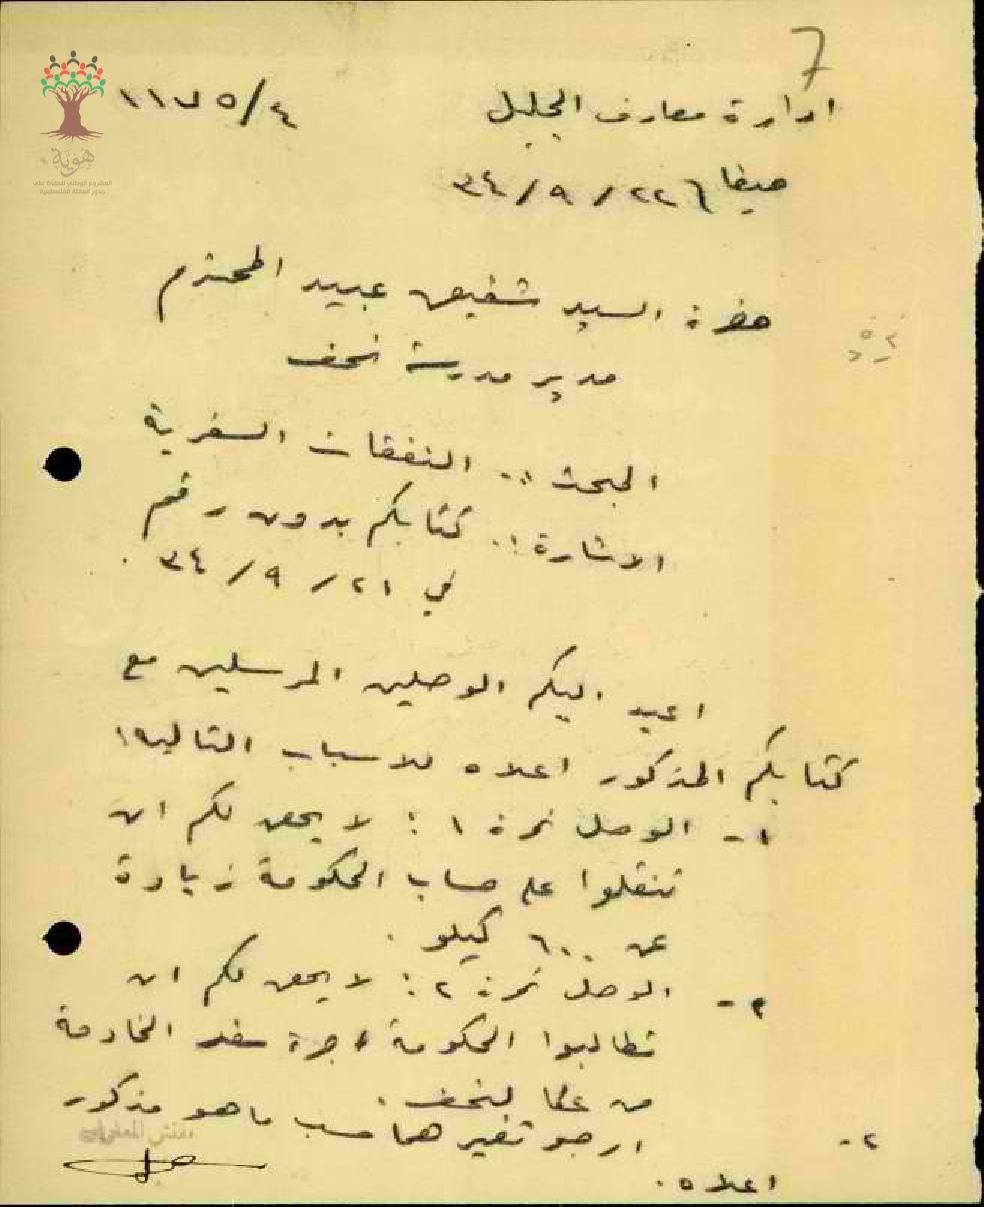 7
ادارة معارف الجليل
١١٧٥/٤
حيفا ٢٢ / ٩ / ٣٤
هوية
المشروع الوطني للحفاظ على
جذور العائلة الفلسطينية
حضرة السيد شفيق عبيد المحترم
مدير مدرسة نحف
المبحث :. النفقات السفرية
الاشارة :. كتابكم بدون رقم
في ٢١ / ٩ / ٣٤ .
اعيد اليكم الوصلين المرسلين مع
كتابكم المذكور اعلاه للاسباب التالية:
١- الوصل نمرة ١ : لا يحق لكم ان
تنقلوا على حساب الحكومة زيادة
عن ٦٠٠ كيلو .
٢- الوصل نمرة ٢ : لا يحق لكم ان
تطالبوا الحكومة اجرة سفر الخادمة
من عكا لنحف .
٢- ارجو تغييرهما حسب ما هو مذكور
اعلاه .
مفتش المعارف